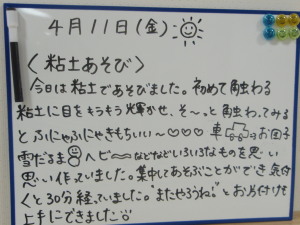 4月11日(金)
〈粘土あそび〉
今日は粘土であそびました。初めて触わる
粘土に目をキラキラ輝かせ、そ〜っと触わってみる
とふにゃふにゃきもちいい〜♡♡♡ 車 お団子
雪だるま ヘビ などなどいろいろなものを思い
思い作っていました。集中してあそぶことができ気付
くと30分経っていました。"またやろうね"とお片付けも
上手にできました